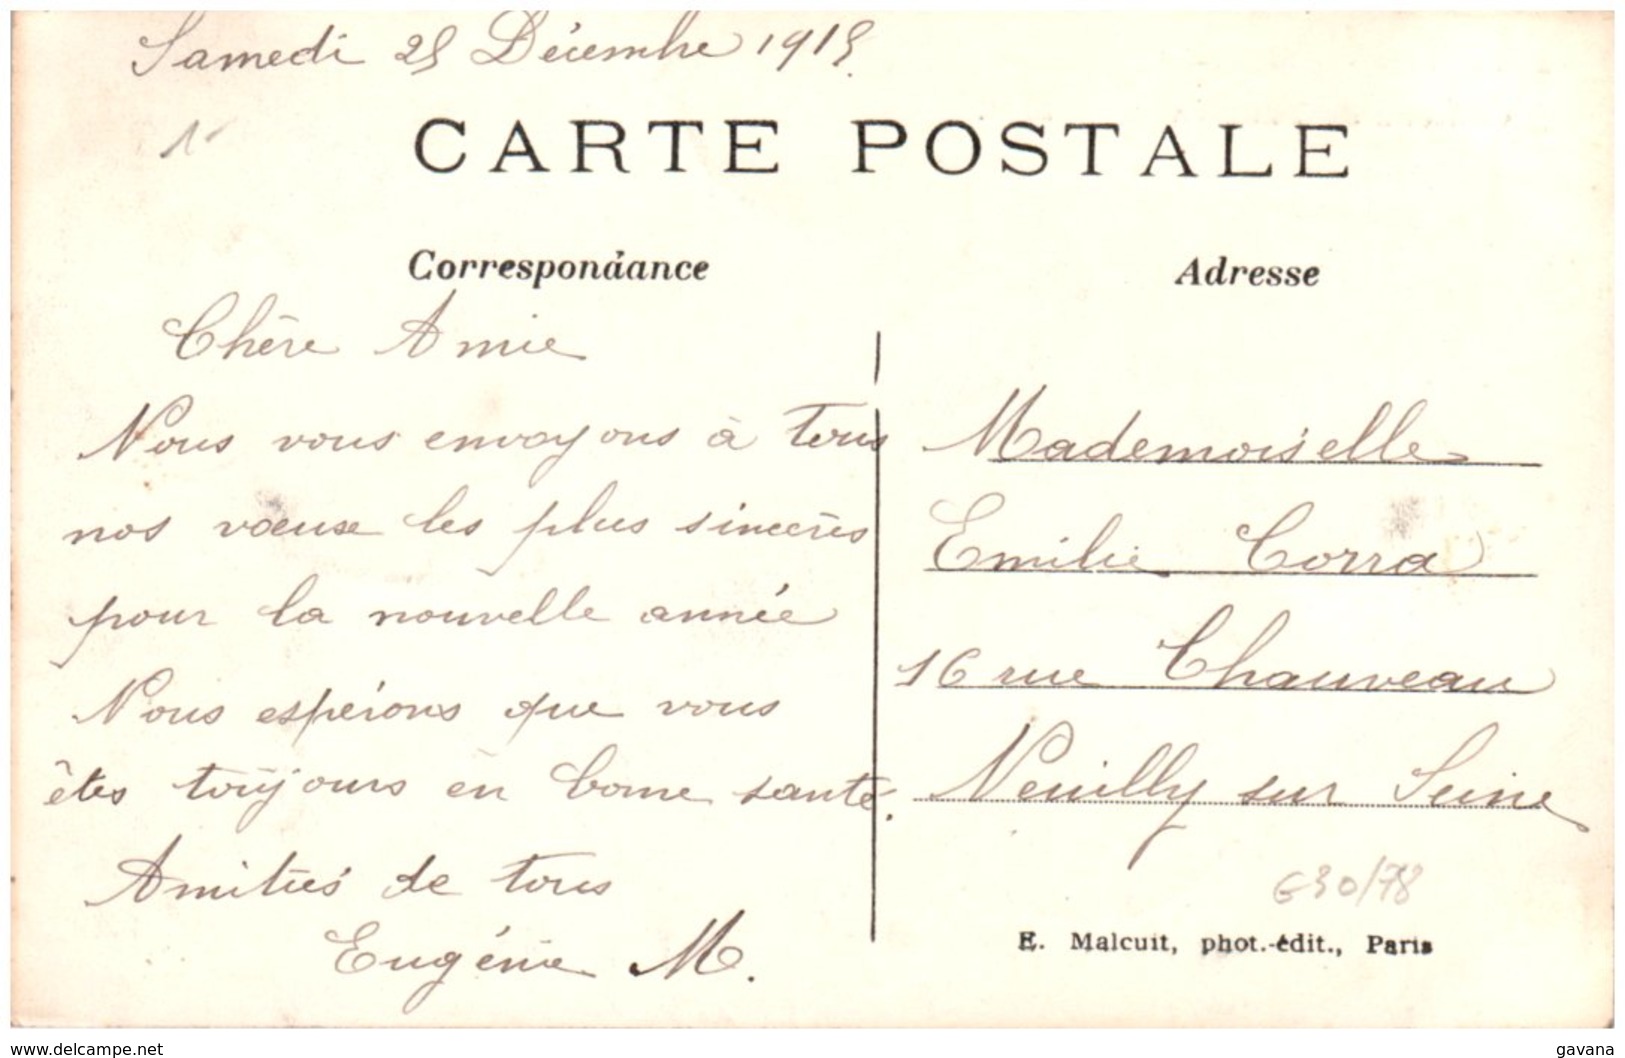 Samedi 25 Décembre 1915.
CARTE POSTALE
Correspondance
Adresse
Chère Amie
Nous vous envoyons à tous
nos voeux les plus sincères
pour la nouvelle année
Nous espérons que vous
êtes toujours en bonne santé.
Amitiés de tous
Eugénie M.
Mademoiselle
Emilie Corra
16 rue Chauveau
Neuilly sur Seine
G30/78
E. Malcuit, phot.-édit., Paris
www.delcampe.net
gavana